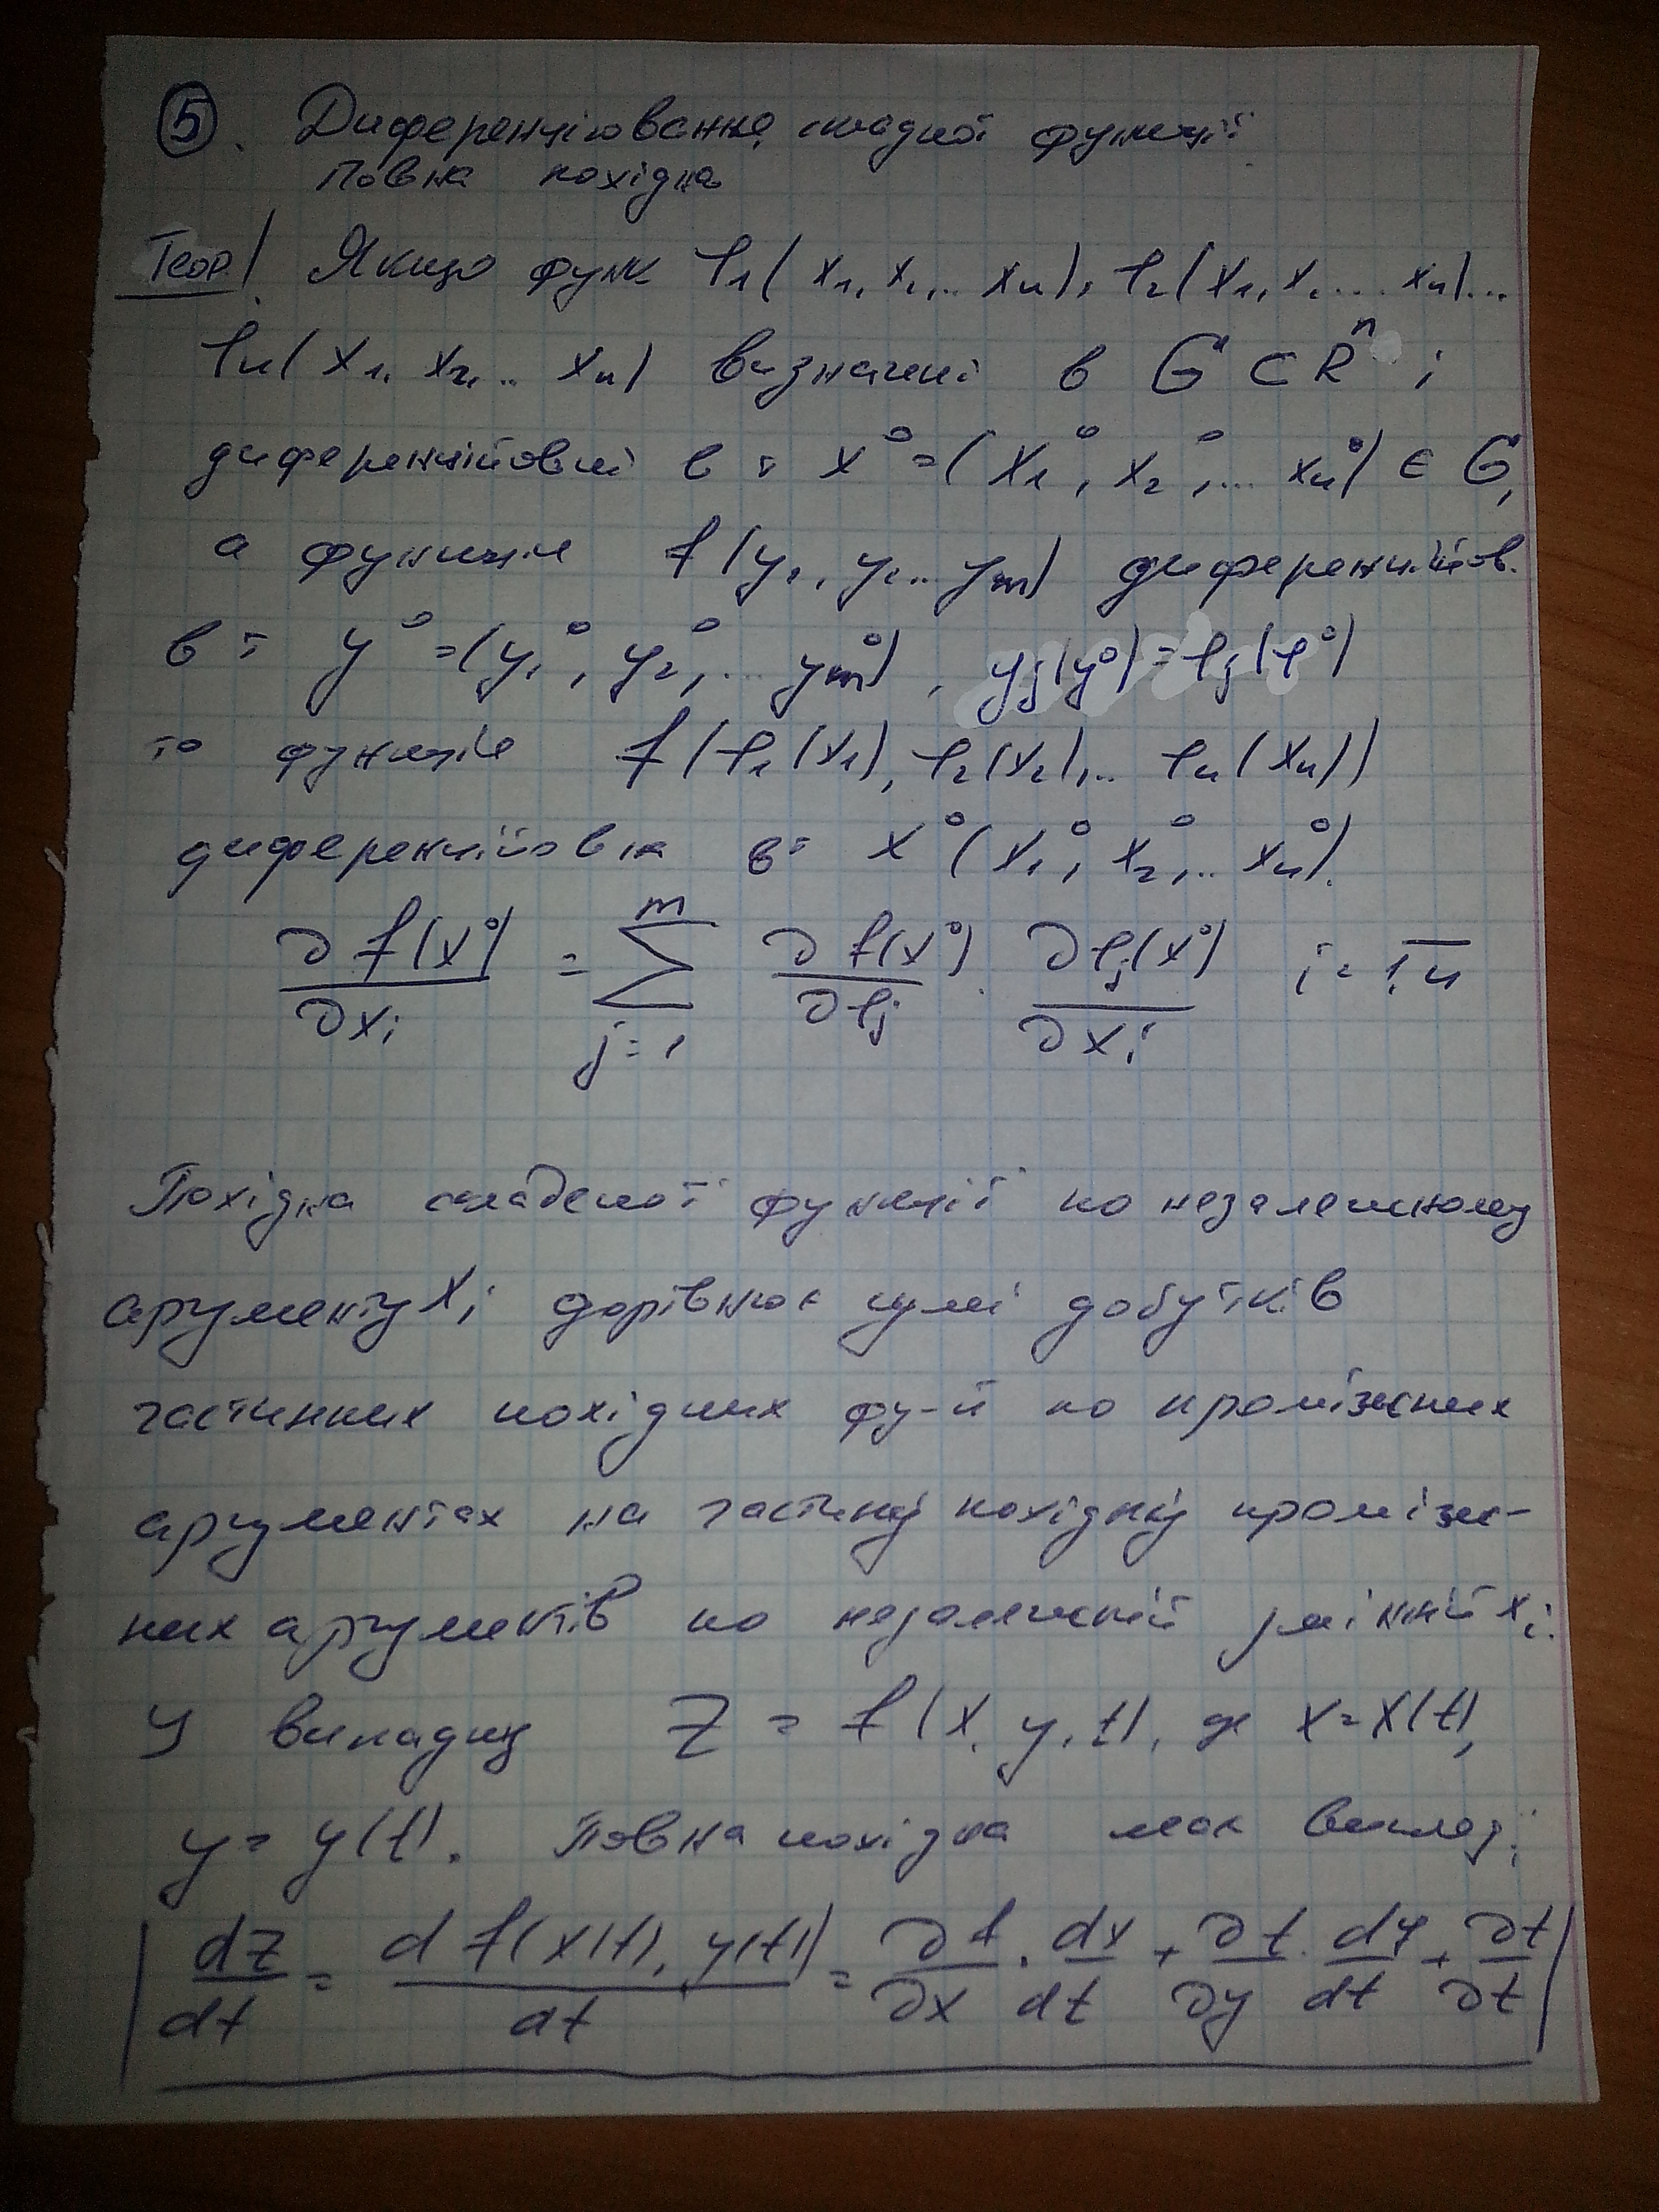 5. Диференціювання складної функції.
Повна похідна
Теор. Якщо функ l₁(x₁, x₂,.. xn), l₂(x₁, x₂, ... xn)...
ln(x₁, x₂,.. xn) визначені в G ⊂ Rⁿ і
диференційовні в т x⁰=(x₁⁰, x₂⁰,... xn⁰) ∈ G,
а функція f(y₁, y₂.. ym) диференційов.
в т y⁰=(y₁⁰, y₂⁰,... ym⁰), yj(y⁰)=lj(l⁰)
то функція f(l₁(x₁), l₂(x₂),.. ln(xn))
диференційовна в т x⁰(x₁⁰, x₂⁰,.. xn⁰).
∂f(x⁰)/∂xi = Σ(j=1..m) ∂f(x⁰)/∂lj · ∂lj(x⁰)/∂xi i = 1,n
Похідна складеної функції по незалежному
аргументу xi дорівнює сумі добутків
частинних похідних фу-й по проміжних
аргументах на частину похідну проміж-
них аргументів по незалежній змінній xi.
У випадку Z = f(x, y, t), де x=x(t),
y= y(t). Повна похідна має вигляд:
dz/dt = d f(x(t), y(t))/dt = ∂f/∂x · dx/dt + ∂f/∂y · dy/dt + ∂f/∂t